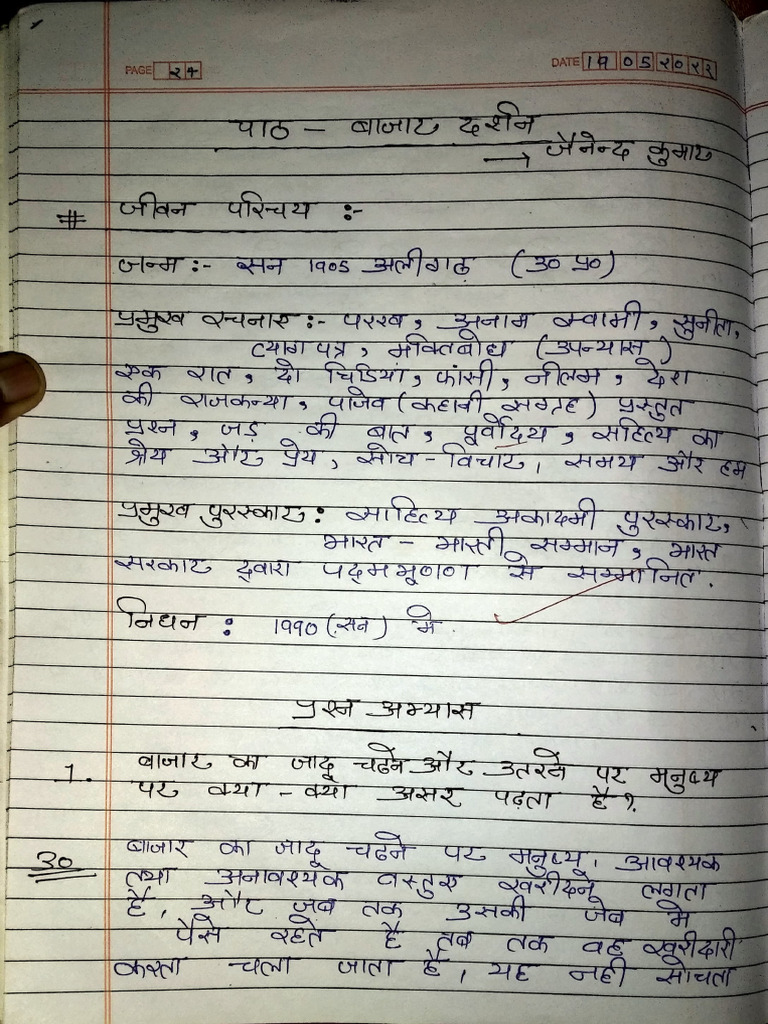 PAGE 24
DATE 19 05 2022
पाठ – बाजार दर्शन
→ जैनेन्द कुमार
# जीवन परिचय :-
जन्म :- सन 1905 अलीगढ (उ० प्र०)
प्रमुख रचनाए :- परख, अनाम स्वामी, सुनीता,
त्यागपत्र, मक्तिबोध (उपन्यास)
एक रात, दो चिडियां, फांसी, नीलम, देश
की राजकन्या, पाजेव (कहानी सग्रह) प्रस्तुत
प्रश्न, जड़ की बात, पूर्वोदय, सहित्य का
श्रेय और प्रेय, सोच-विचार, समय और हम
प्रमुख पुरस्कार : साहित्य अकादमी पुरस्कार,
भारत – भारती सम्मान, भारत
सरकार द्वारा पद्मभूषण से सम्मानित.
निधन : 1990 (सन) मे
प्रश्न अभ्यास
1. बाजार का जादू चढने और उतरने पर मनुष्य
पर क्या – क्या असर पढ़ता है?
उ० बाजार का जादू चढने पर मनुष्य, आवश्यक
तथा अनावश्यक वस्तुए खरीदने लगता
है, और जब तक उसकी जेब मे
पैसे रहते है तब तक वह खरीदारी
करता चला जाता है, यह नही सोचता